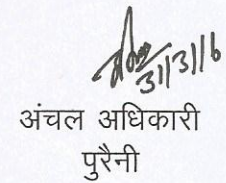 31/3/16
अंचल अधिकारी
पुरैनी